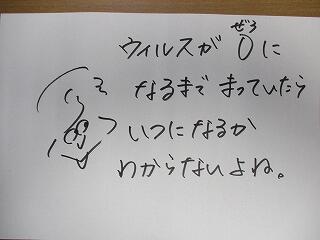 ウィルスが 0に
ぜろ
なるまで まっていたら
いつになるか
わからないよね。